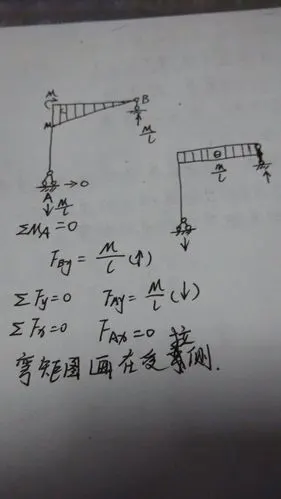 M
B
M
M/l
⊖
M/l
A
→0
M/l
ΣMA=0
FBy = M/l (↑)
ΣFy=0 FAy= M/l (↓)
ΣFx=0 FAx=0
弯矩图画在受拉侧.